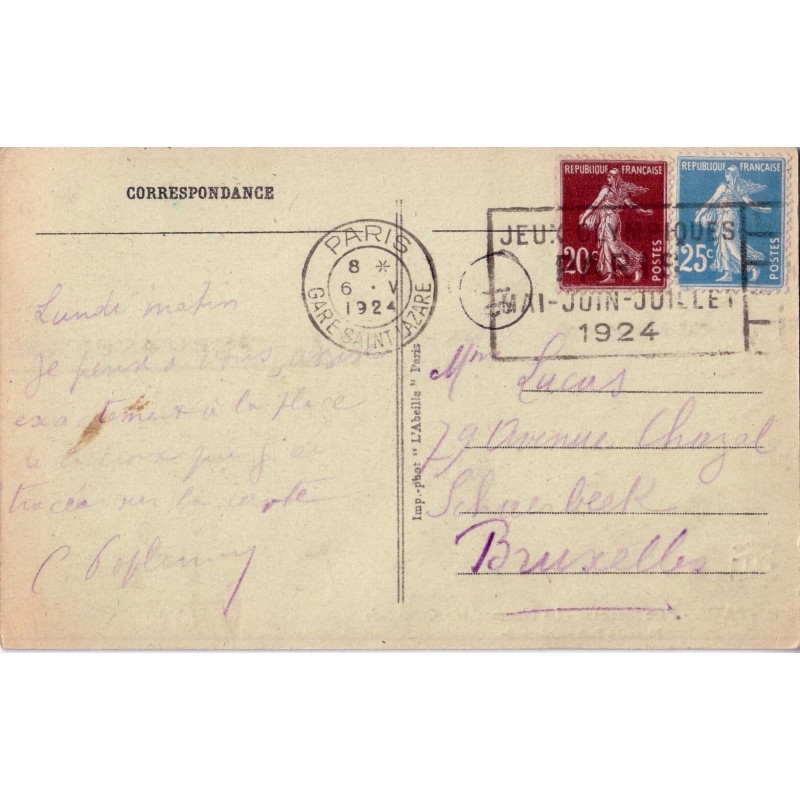 CORRESPONDANCE
Lundi matin
Je pense à vous, assis
exactement à la place
de la croix que j'ai
tracée sur la carte
C
Imp.-phot "L'Abeille" Paris
PARIS
8 *
6 · V
1924
GARE SAINT LAZARE
REPUBLIQUE FRANÇAISE
20c
POSTES
REPUBLIQUE FRANÇAISE
25c
POSTES
JEUX OLYMPIQUES
PARIS
MAI-JUIN-JUILLET
1924
Mme Lucas
79 Avenue Chazal
Schaerbeek
Bruxelles